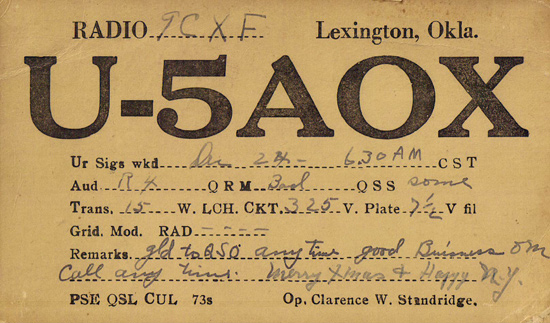 RADIO 9CXF Lexington, Okla.
U-5AOX
Ur Sigs wkd Dec 24- 6.30 AM CST
Aud R4 QRM Bad QSS some
Trans. 15 W. LCH. CKT. 325 V. Plate 7½ V fil
Grid. Mod. RAD - - - -
Remarks gld to QSO any time good Buisness om
Call any time. Merry Xmas & Happy N.Y.
PSE QSL CUL 73s Op. Clarence W. Standridge.